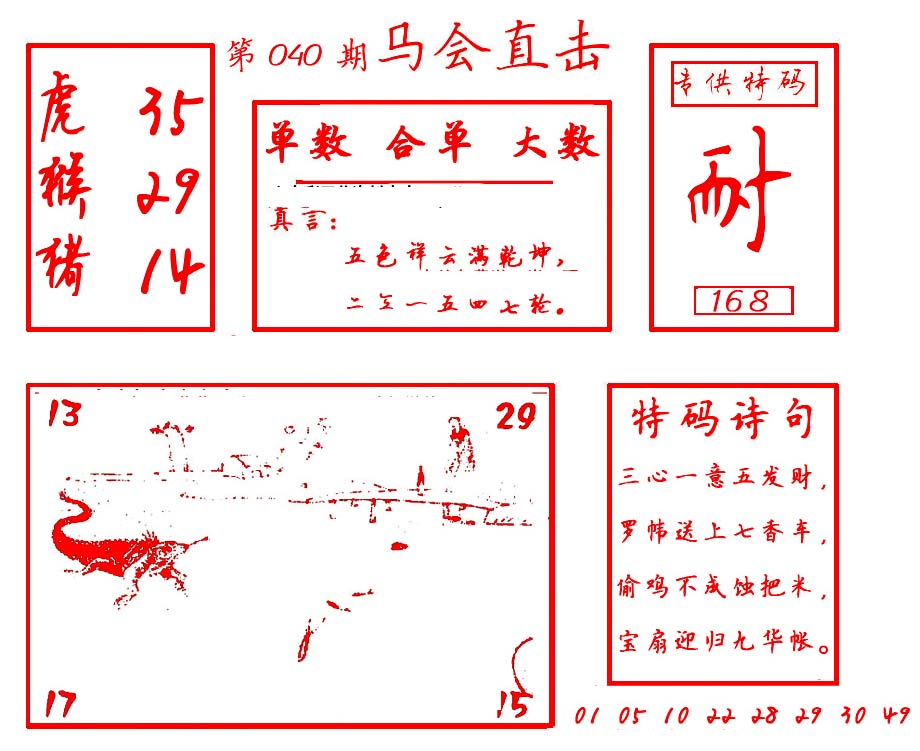 第 040 期 马会直击
虎 35
猴 29
猪 14
单数 合单 大数
真言:
五色祥云满乾坤,
二三一五四七轮。
专供特码
耐
168
13
29
17
15
特码诗句
三心一意五发财,
罗帏送上七香车,
偷鸡不成蚀把米,
宝扇迎归九华帐。
01 05 10 22 28 29 30 49